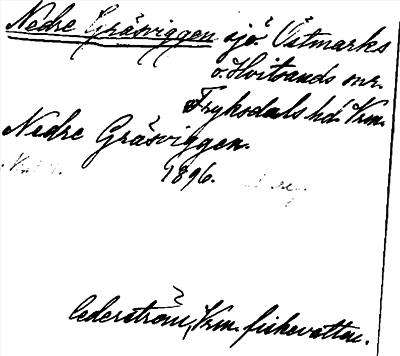 Nedre Gräsviggen sjö. Östmarks
o. Hvitsands snr.
Fryksdals hd. Vrm.
Nedre Gräsviggen.
1896.
Cederström, Vrm. fiskevatten.